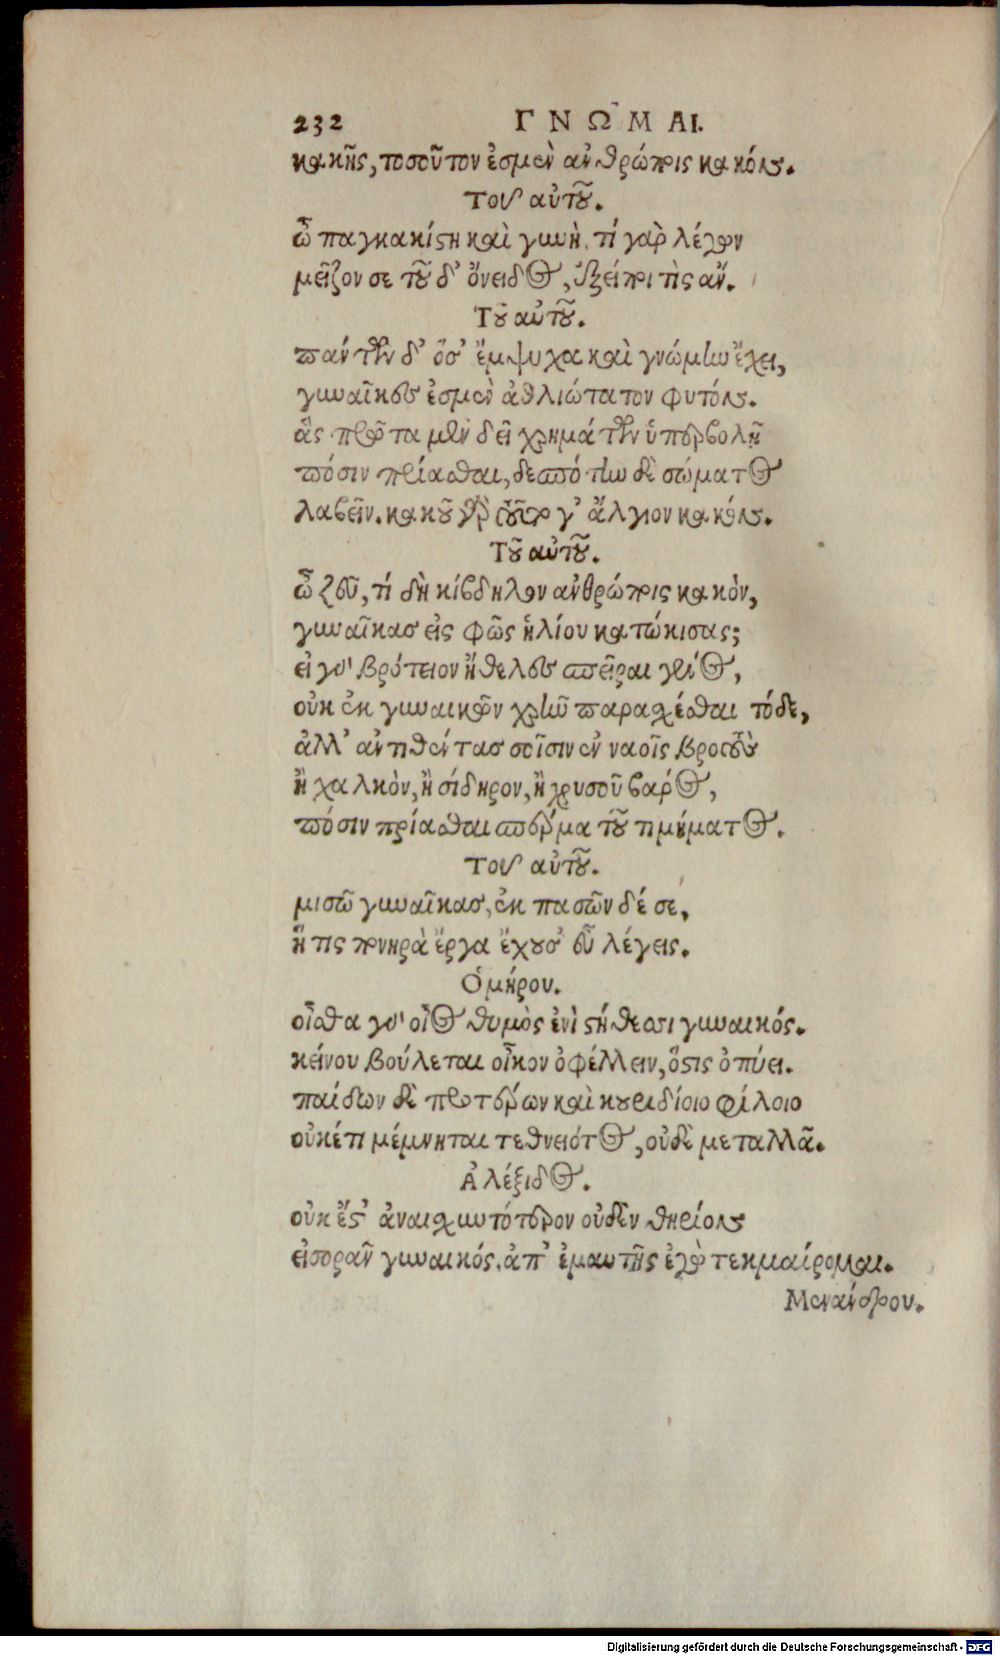 232 ΓΝΩ͂ΜΑΙ.
κακῆς, τοσοῦτον ἐσμὲν ἀνθρώποις κακόν.
Τοῦ αὐτοῦ.
ὦ παγκακίςη καὶ γυνὴ. τί γὰρ λέγων
μεῖζον σε τοῦ δ' ὄνειδος, ἐξείποι τὶς ἄν.
Τοῦ αὐτοῦ.
πάντων δ' ὅσ' ἔμψυχα καὶ γνώμην ἔχει,
γυναῖκες ἐσμὲν ἀθλιώτατον φυτόν.
ἃς πρῶτα μὲν δεῖ χρημάτων ὑπερβολῇ
πόσιν πρίασθαι, δεσπότην δὲ σώματος
λαβεῖν. κακοῦ γὰρ τοῦτο γ' ἄλγιον κακόν.
Τοῦ αὐτοῦ.
ὦ ζεῦ, τί δὴ κίβδηλον ἀνθρώποις κακὸν,
γυναῖκας εἰς φῶς ἡλίου κατώκισας;
εἰ γὸ βρότειον ἤθελες σπεῖραι γένος,
οὐκ ἐκ γυναικῶν χρῆν παρασχέσθαι τόδε,
ἀλλ' ἀντιθέντας σοῖσιν ἐν ναοῖς βροτοὺς
ἢ χαλκὸν, ἢ σίδηρον, ἢ χρυσοῦ βάρος,
πόσιν πρίασθαι σπέρμα τοῦ τιμήματος.
Τοῦ αὐτοῦ.
μισῶ γυναῖκας, ἐκ πασῶν δέ σε,
ἥτις πονηρὰ ἔργα ἔχουσ' εὖ λέγεις.
Ὁμήρου.
οἶσθα γὸ οἷος θυμὸς ἐνὶ ςήθεσσι γυναικός.
κείνου βούλεται οἶκον ὀφέλλειν, ὅςις ὀπύει.
παίδων δὲ προτέρων καὶ κουριδίοιο φίλοιο
οὐκέτι μέμνηται τεθνειότος, οὐδὲ μεταλλᾶ.
Ἀλέξιδος.
οὐκ ἔς' ἀναισχυντότερον οὐδὲν θηρίον
εἰσορᾶν γυναικός. ἀπ' ἐμαυτῆς ἐγὼ τεκμαίρομαι.
Μενάνδρου.
Digitalisierung gefördert durch die Deutsche Forschungsgemeinschaft - DFG